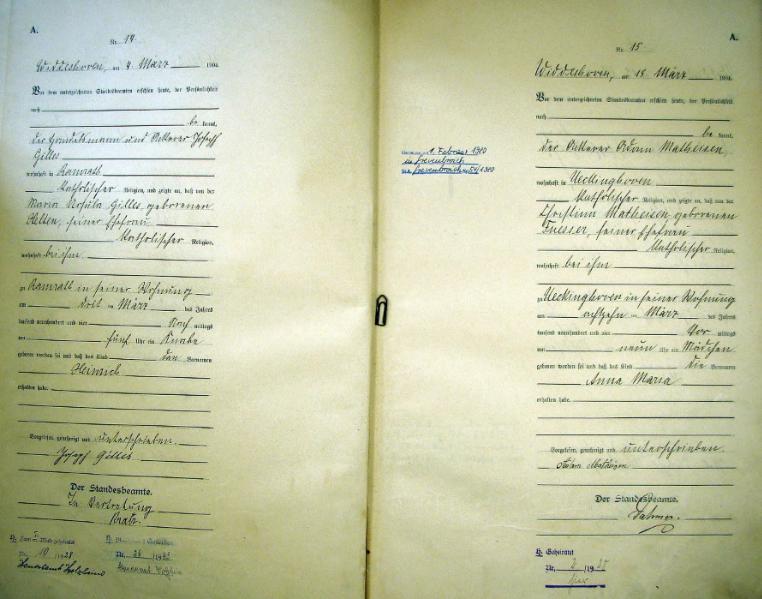 A.
Nr. 14
Widdeshoven, am 4 März 1904.
Vor dem unterzeichneten Standesbeamten erschien heute, der Persönlichkeit
nach
be kannt,
der Handelsmann und Ackerer Joseph
Gilles
wohnhaft in Ramrath
Katholischer Religion, und zeigte an, daß von der
Maria Ursula Gilles geborenen
seiner Ehefrau
Katholischer Religion,
wohnhaft bei ihm
zu Ramrath in seiner Wohnung
am drei ten März des Jahres
tausend neunhundert und vier Nach mittags
um fünf Uhr ein Knabe
geboren worden sei und daß das Kind den Vornamen
Heinrich
erhalten habe.
Vorgelesen, genehmigt und unterschrieben.
Joseph Gilles
Der Standesbeamte.
In Vertretung
Nr. 10 /1928
Nr. 26 /19
A.
Nr. 15
Widdeshoven, am 18 März 1904.
Vor dem unterzeichneten Standesbeamten erschien heute, der Persönlichkeit
nach
be kannt,
der Ackerer Adam Matheisen,
wohnhaft in Ueckinghoven
Katholischer Religion, und zeigte an, daß von der
Christina Matheisen, geborenen
seiner Ehefrau
Katholischer Religion,
wohnhaft bei ihm
zu Ueckinghoven in seiner Wohnung
am achtzehn ten März des Jahres
tausend neunhundert und vier Vor mittags
um neun Uhr ein Mädchen
geboren worden sei und daß das Kind die Vornamen
Anna Maria
erhalten habe.
Vorgelesen, genehmigt und unterschrieben.
Adam Matheisen
Der Standesbeamte.
1. Februar 1980
in Grevenbroich
H. Geheirat
Nr. 2 /19